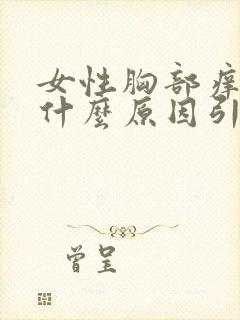 女性胸部痒
什麼原因引
曾呈